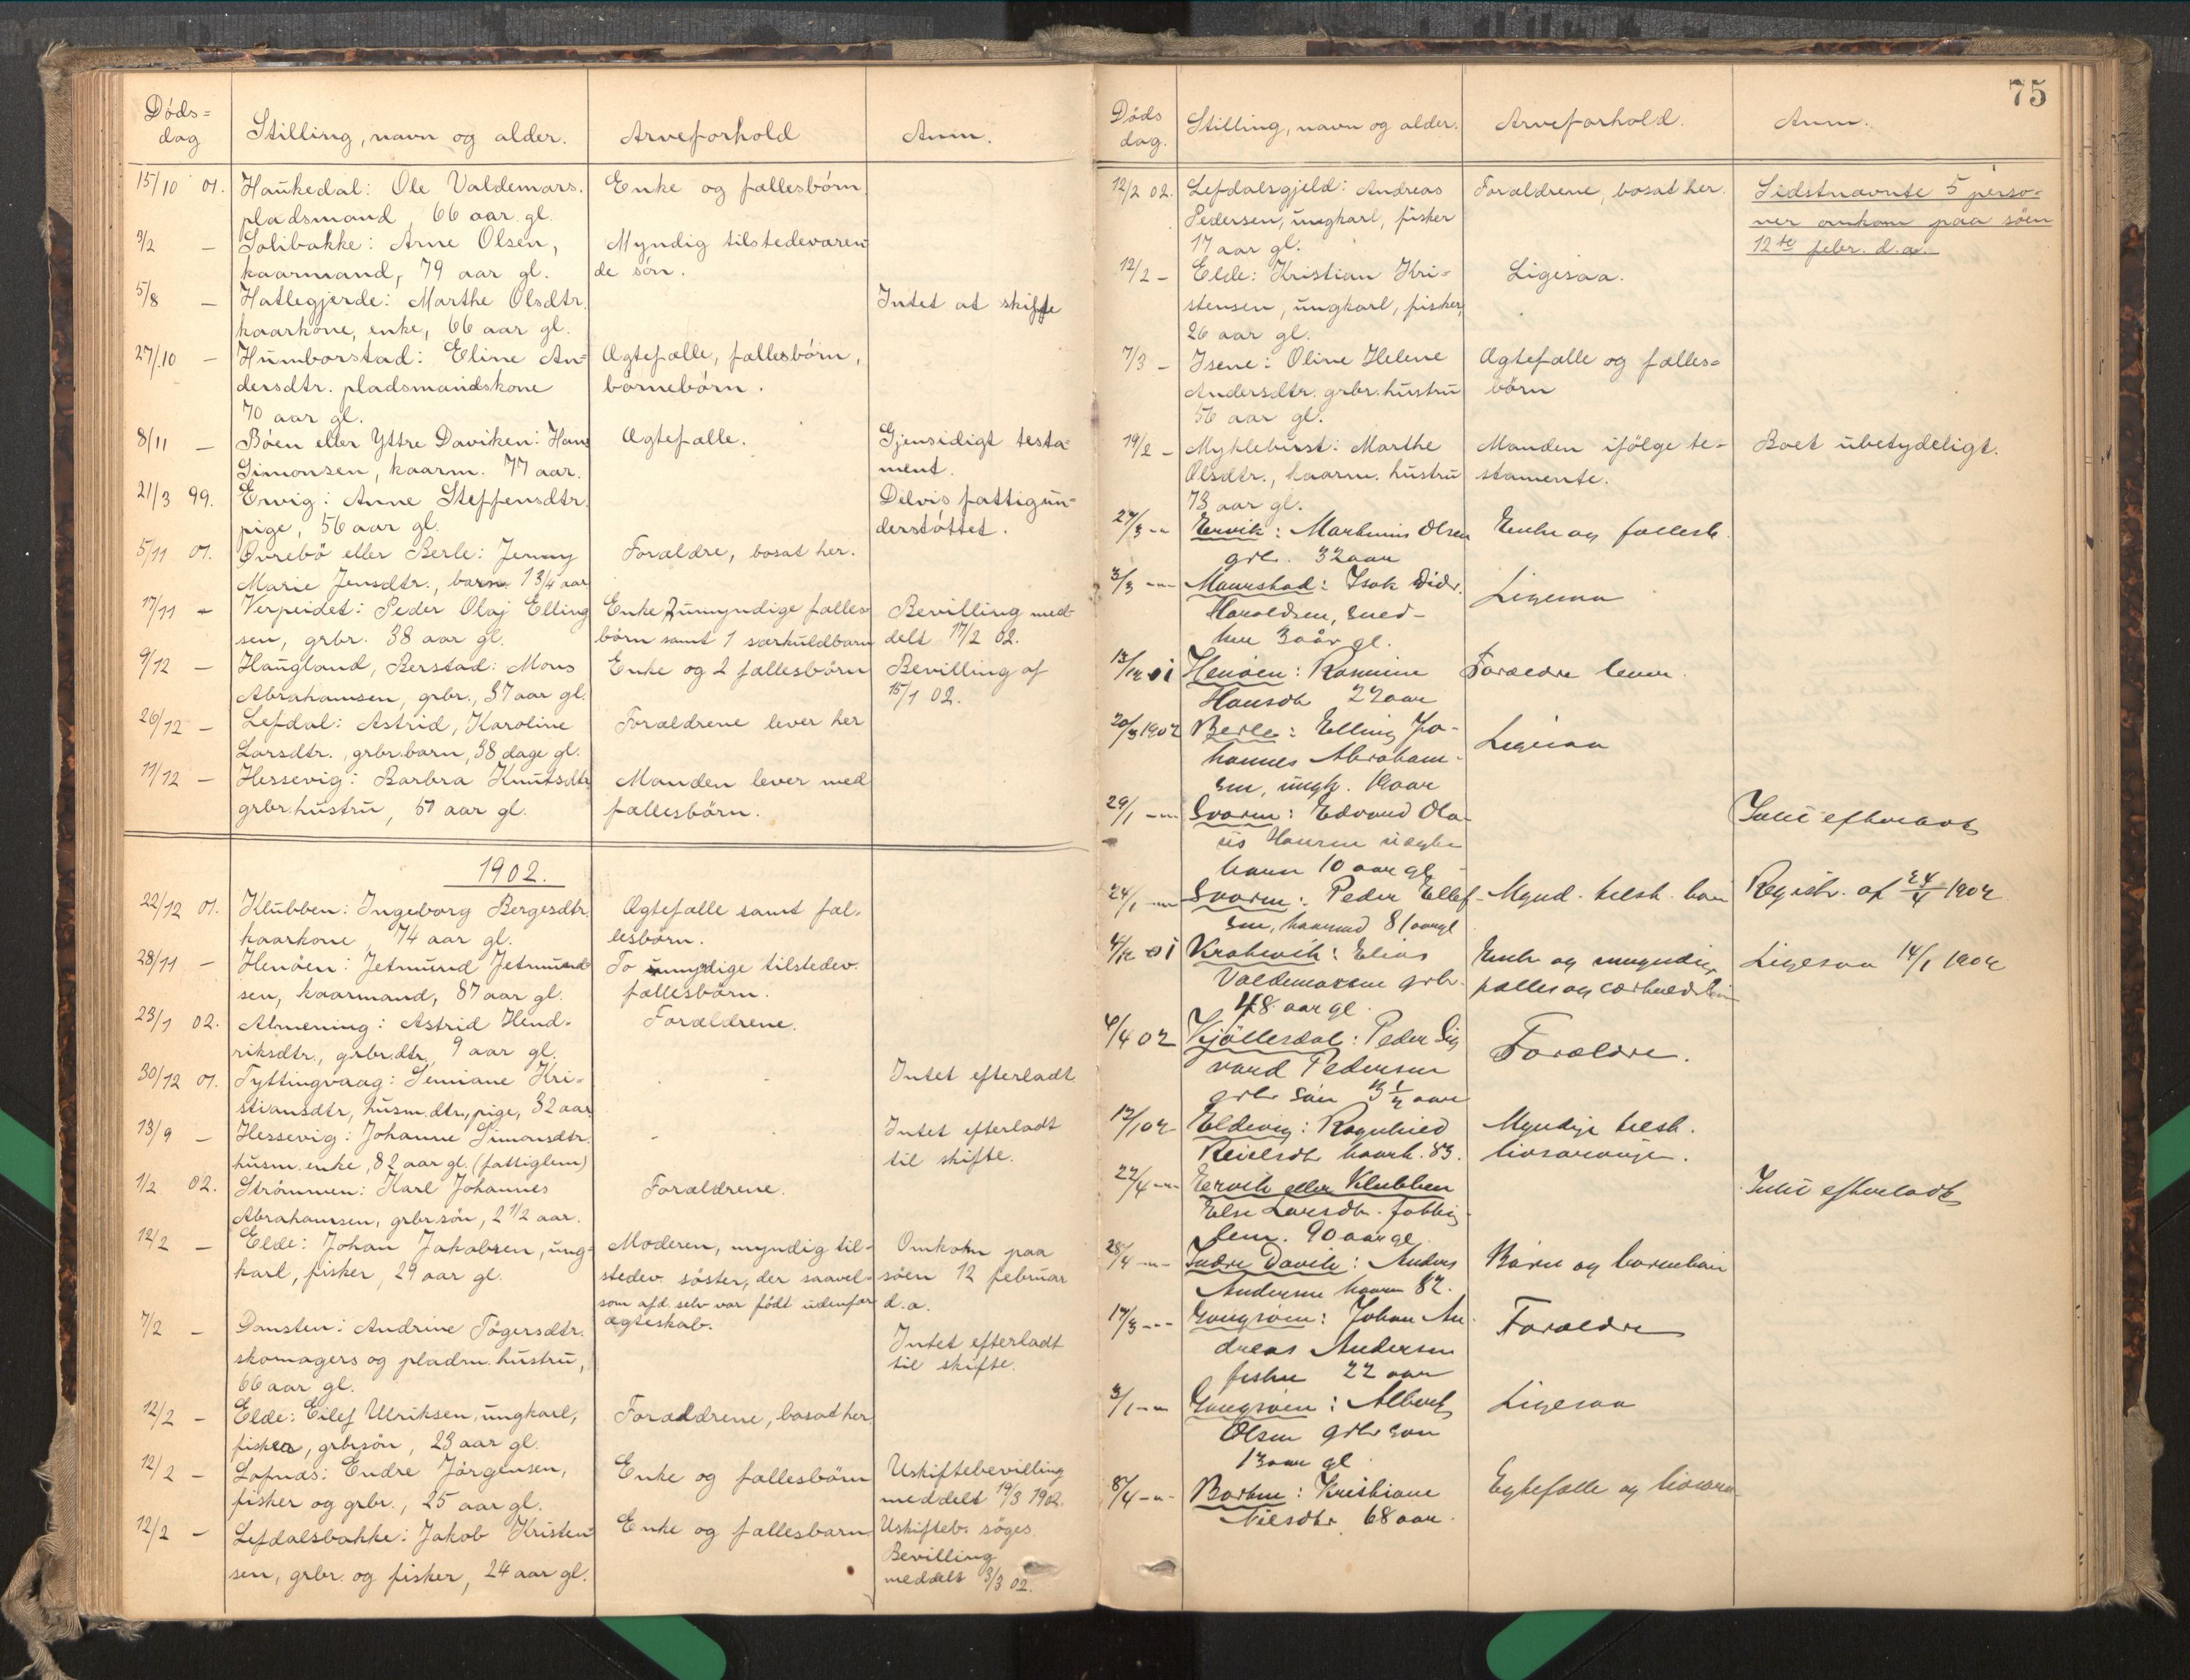 Döds= dag
Stilling, navn og alder.
Arveforhold
Anm.
15/10 01. Haukedal: Ole Valdemars. Enke og fællesbörn.
pladsmand, 66 aar gl.
3/2 — Solibakke: Arne Olsen, Myndig tilstedeværen
kaarmand, 79 aar gl. de sön.
5/8 — Hatlegjerde: Marthe Olsdtr. Intet at skifte
kaarkone, enke, 66 aar gl.
27/10 — Humborstad: Eline An= Ægtefælle, fællesbörn,
dersdtr. pladsmandskone börnebörn.
70 aar gl.
8/11 — Böen eller Yttre Daviken: Hans Ægtefælle. Gjensidigt testa=
Simonsen, kaarm. 77 aar. ment.
21/3 99. Ervig: Anne Steffensdtr. Delvis fattigun=
pige, 56 aar gl. derstöttet.
5/11 01. Övrebö eller Berle: Jenny Forældre, bosat her.
Marie Jensdtr., barn 1 3/4 aar
17/11 — Verpeidet: Peder Olaj Elling Enke 2 umyndige fælles
sen, grbr. 38 aar gl. börn samt 1 særkuldbarn
Bevilling med
delt 17/2 02.
9/12 — Haugland, Berstad: Mons Enke og 2 fællesbörn Bevilling af
Abrahamsen, grbr., 37 aar gl. 15/1 02.
26/12 — Lefdal: Astrid, Karoline Forældrene lever her
Larsdtr., grbr.barn, 38 dage gl.
11/12 — Hessevig: Barbra Knutsdtr Manden lever med
grbr.hustru, 57 aar gl. fællesbörn.
1902.
22/12 01. Klubben: Ingeborg Bergesdtr. Ægtefælle samt fæl=
kaarkone, 74 aar gl. lesbörn.
28/11 — Henöen: Jetmund Jetmund To umyndige tilstedev.
sen, kaarmand, 87 aar gl. fællesbörn.
23/1 02. Almening: Astrid Hend= Forældrene.
riksdtr., grbr.dtr. 9 aar gl.
30/12 01. Tyttingvaag: Semiane Kri= Intet efterladt
stiansdtr, husm.dtr, pige, 32 aar
13/9 — Hessevig: Johanne Simonsdtr. Intet efterladt
husm. enke, 82 aar gl. (fattiglem) til skifte.
1/2 02. Strömmen: Karl Johannes Forældrene.
Abrahamsen, grbr.sön, 2 1/2 aar.
12/2 — Elde: Johan Jakobsen, ung= Moderen, myndig til= Omkom paa
karl, fisker, 29 aar gl. stedev. söster, der saavel= söen 12 februar
som afd. selv var födt udenfor d.a.
ægteskab.
7/2 — Domsten: Andrine Tögersdtr. Intet efterladt
skomagers og pladsm. hustru, til skifte.
66 aar gl.
12/2 — Elde: Eilef Ulriksen, ungkarl, Forældrene, bosat her
fisker, grbrsön, 23 aar gl.
12/2 — Lofnæs: Endre Jörgensen, Enke og fællesbörn Uskiftebevilling
fisker og grbr., 25 aar gl. meddelt 19/3 1902.
12/2 — Lefdalsbakke: Jakob Kristen= Enke og fællesbarn Uskifteb. söges.
Bevilling
sen, grbr. og fisker, 24 aar gl. meddelt 3/3 02.
75
Döds dag.
Stilling, navn og alder.
Arveforhold.
Anm.
12/2 02. Lefdalsgjeld: Andreas Forældrene, bosat her. Sidstnævnte 5 perso=
Pedersen, ungkarl, fisker ner omkom paa söen
17 aar gl. 12te febr. d.a.
12/2 — Elde: Kristian Kri= Ligesaa.
stensen, ungkarl, fisker,
26 aar gl.
7/3 — Isene: Oline Helene Ægtefælle og fælles=
Andersdtr. grbr.hustru börn
56 aar gl.
19/2 — Myklebust: Marthe Manden ifölge te= Boet ubetydeligt.
Olsdtr., kaarm. hustru stamente.
73 aar gl.
27/3 — Ervik: Martinus Olsen Enke og fællesb.
grbr. 32 aar
3/3 — Maurstad: Isak Didr. Ligesaa
Haraldsen,
30 år gl.
13/12 01 Henöen: Rasmine Forældre lever.
Hansdtr 22 aar
20/3 1902 Berle: Elling Jo= Ligesaa
hannes Abraham=
sen, ungk. 19 aar
29/1 — Svoren: Edvard Ola= Intet efterladt
us Hansen uægte
barn 10 aar gl
24/1 — Svoren: Peder Ellef= Mynd. tilst. barn Registr. af 24/4 1902
sen, kaarmd 81 aar gl
4/12 01 Krakevik: Elias Enke og umyndige Ligesaa 14/1 1902
Valdemarsen grbr. fælles og særkuldsbörn
48 aar gl.
4/4 02 Kjöllesdal: Peder Sig Forældre.
vard Pedersen
grbr sön 3 1/2 aar
12/1 02 Eldevig: Ragnhild Myndige tilst.
Reielsdtr kaark. 83. livsarvinger.
22/4 — Ervik eller Klubben Intet efterladt
Else Larsdtr. fattig=
lem. 90 aar gl.
28/4 — Indre Davik: Anders Börn og barnebörn
Andersen kaarm 82.
17/3 — Gangsöen: Johan An= Forældre
dreas Andersen
fisker 22 aar
3/1 — Gangsöen: Albert Ligesaa
Olsen grbr sön
13 aar gl
8/4 — Bortne: Kristiane Egtefælle og livsarv
Nilsdtr 68 aar.